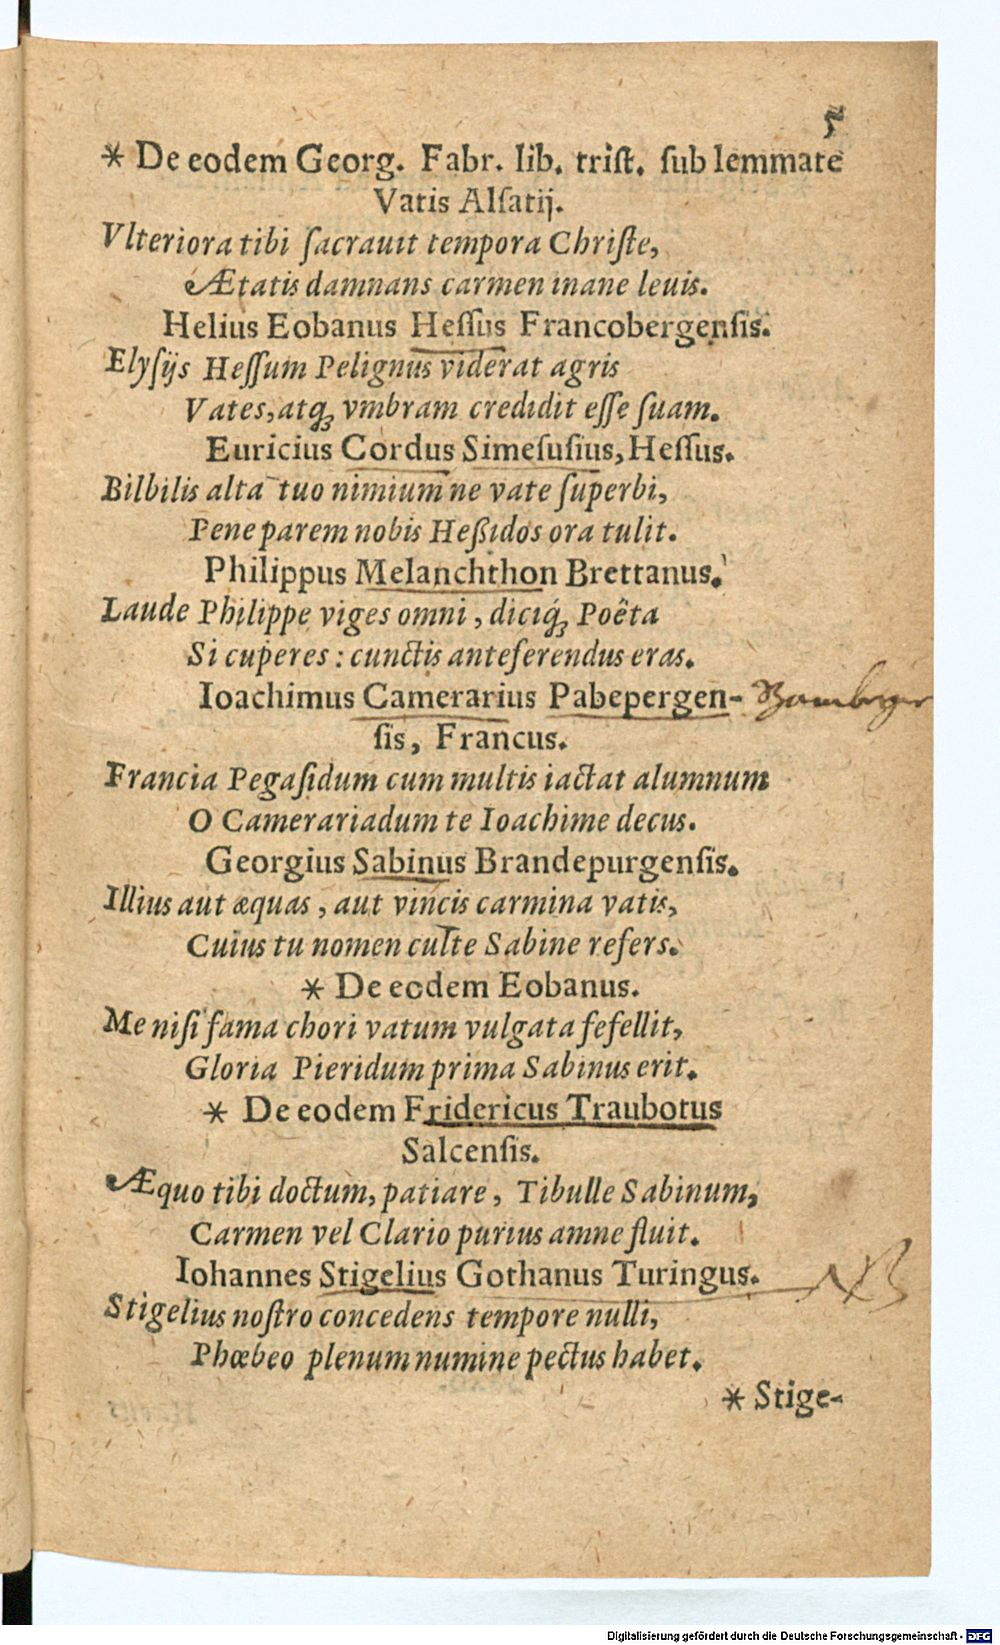 5
* De eodem Georg. Fabr. lib. trist. sub lemmate
Vatis Alsatij.
Vlteriora tibi sacrauit tempora Christe,
Ætatis damnans carmen inane leuis.
Helius Eobanus Hessus Francobergensis.
Elysijs Hessum Pelignus viderat agris
Vates, atq; vmbram credidit esse suam.
Euricius Cordus Simesusius, Hessus.
Bilbilis alta tuo nimium ne vate superbi,
Pene parem nobis Heßidos ora tulit.
Philippus Melanchthon Brettanus.
Laude Philippe viges omni, diciq́; Poêta
Si cuperes: cunctis anteferendus eras.
Ioachimus Camerarius Pabepergen- Bamberger
sis, Francus.
Francia Pegasidum cum multis iactat alumnum
O Camerariadum te Ioachime decus.
Georgius Sabinus Brandepurgensis.
Illius aut æquas, aut vincis carmina vatis,
Cuius tu nomen culte Sabine refers.
* De eodem Eobanus.
Me nisi fama chori vatum vulgata fefellit,
Gloria Pieridum prima Sabinus erit.
* De eodem Fridericus Traubotus
Salcensis.
Æquo tibi doctum, patiare, Tibulle Sabinum,
Carmen vel Clario purius amne fluit.
Iohannes Stigelius Gothanus Turingus. NB
Stigelius nostro concedens tempore nulli,
Phœbeo plenum numine pectus habet.
* Stige-
Digitalisierung gefördert durch die Deutsche Forschungsgemeinschaft - DFG